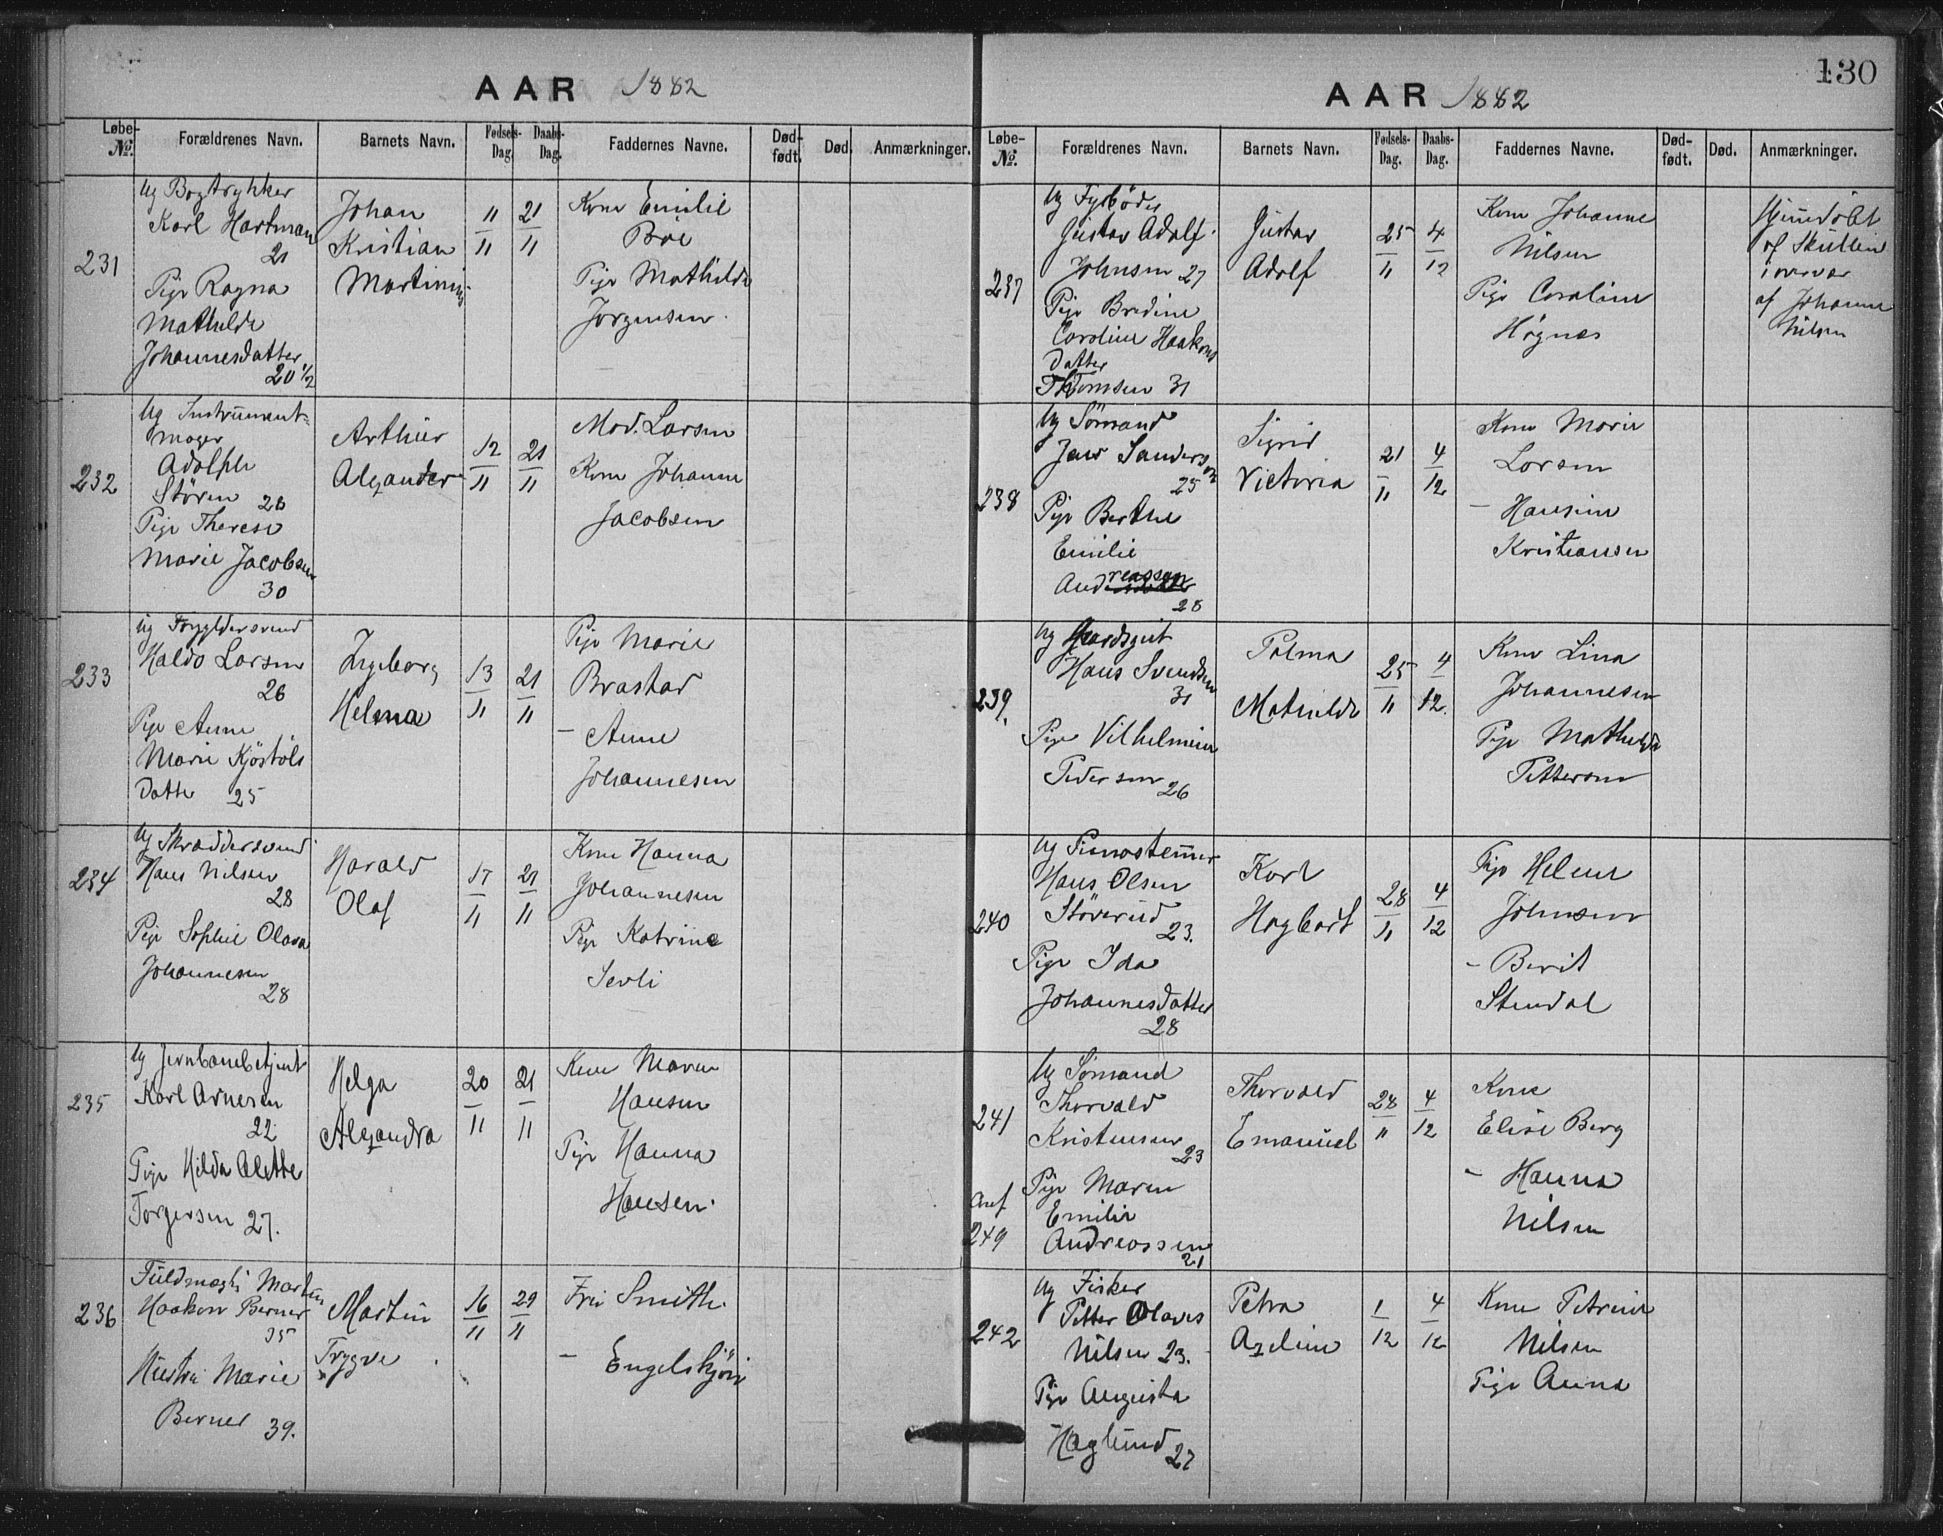 AAR 1882
Løbe-
№.
Forældrenes Navn.
Barnets Navn.
Fødsels-
Dag.
Daabs-
Dag.
Faddernes Navne.
Død-
født.
Død.
Anmærkninger.
231
Ug Bogtrykker
Karl Hartman
21
Pige Ragna
Mathilde
Johannesdatter
20 1/2
Johan
Kristian
Martinius
11/11
21/11
Kone Emilie
Böe
Pige Mathilde
Jörgensen.
232
Ug Instrument=
mager
Adolph
Stören 28
Pige Therese
Marie Jacobsen
30
Arthur
Alexander
12/11
21/11
Mad. Larsen
Kone Johanne
Jacobsen
233
Ug
Haldo Larsen
26
Pige Anne
Marie Kjöstöls
Datter 25
Ingeborg
Helma
13/11
21/11
Pige Marie
Brastad
– Anne
Johannesen
234
Ug Skræddersvend
Hans Nilsen
28
Pige Sophie Olava
Johannesen
28
Harald
Olaf
17/11
21/11
Kone Hanna
Johannesen
Pige Katrine
Sevli
235
Ug Jernbanebetjent
Karl Arnesen
22
Pige Hilda Alette
Torgersen 27.
Helga
Alexandra
20/11
21/11
Kone Maren
Hansen
Pige Hanna
Hansen.
236
Fuldmægti Martin
Haakon Berner
35
Hustru Marie
Berner 39.
Martin
Trygve
16/11
29/11
Fru Smith.
– Engelskjön
AAR 1882
130
Løbe-
№.
Forældrenes Navn.
Barnets Navn.
Fødsels-
Dag.
Daabs-
Dag.
Faddernes Navne.
Død-
født.
Død.
Anmærkninger.
237
Ug Fyrböder
Gustav Adolf
Johnsen 27
Pige Bredine
Caroline Haakons
Datter
Thomsen 31
Gustav
Adolf
25/11
4/12
Kone Johanne
Nilsen
Pige Caroline
Högnæs
Hjemdöbt
af Skullein
i overvær
af Johanne
Nilsen
238
Ug Sömand
Jens Sanderson
25
Pige Berthe
Emilie
Andreassen
28
Sigrid
Victoria
21/11
4/12
Kone Marie
Larsen
– Hansine
Kristiansen
239.
Ug Gardsgut
Hans Svendsen
31
Pige Vilhelmine
Pedersen 26
Palma
Mathilde
25/11
4/12.
Kone Lina
Johannesen
Pige Mathilde
Pettersen
240
Ug Pianostemmer
Hans Olsen
Stöverud 23.
Pige Ida
Johannesdatter
28
Karl
Hagbart
28/11
4/12
Pige Helene
Johnsen
– Berit
Stendal
241
Ug Sömand
Thorvald
Kristensen 23
Pige Maren
Emilie
Andreassen
21
Thorvald
Emanuel
28/11
4/12
Kone
Elise Berg
– Hanna
Nilsen
249
242
Ug Fisker
Petter Olaves
Nilsen 23.
Pige Augusta
Haglund 27
Petra
Azeline
1/12
4/12
Kone Petrine
Nilsen
Pige Anna